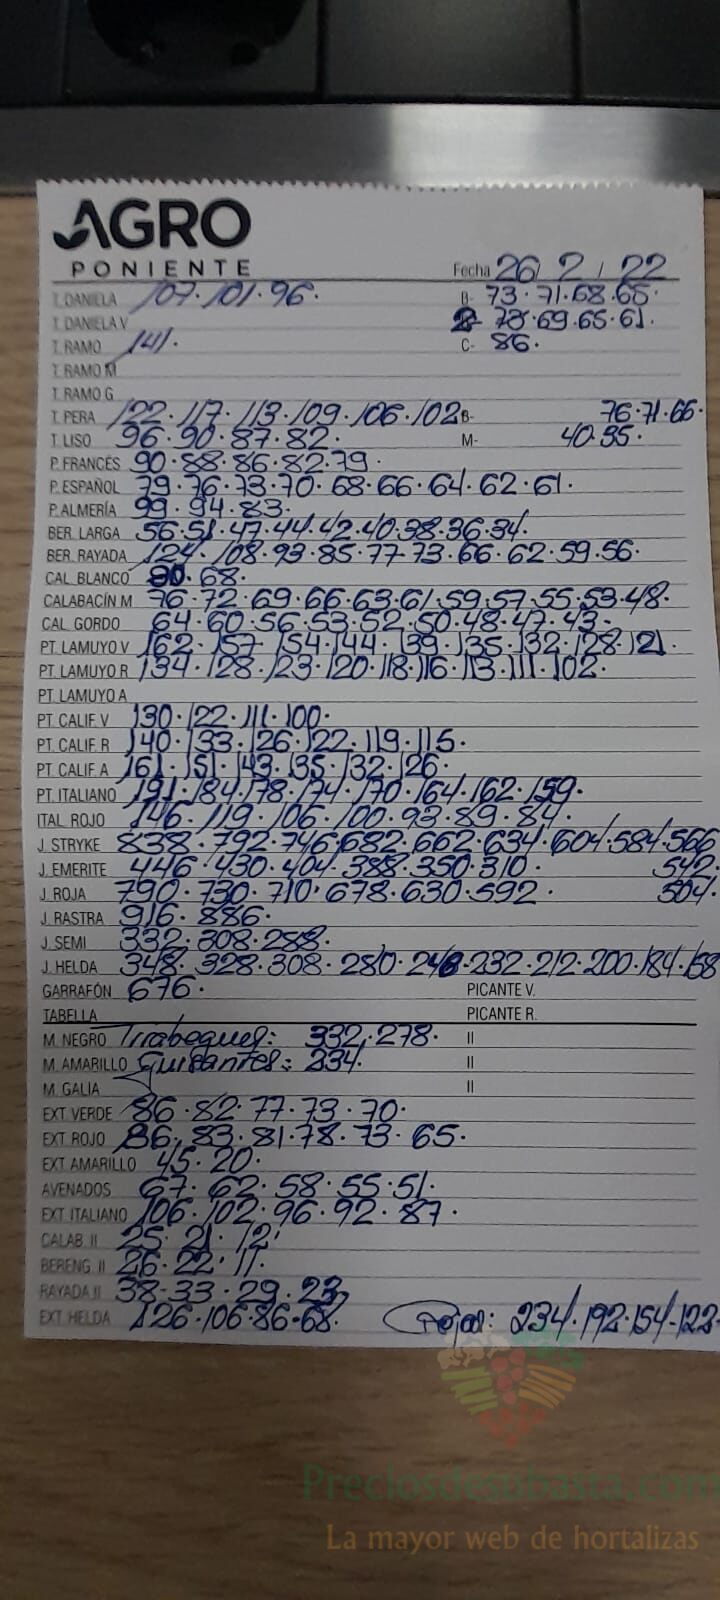 AGRO
PONIENTE
Fecha 26/ 2 / 22
T. DANIELA 107·101·96· B- 73·71·68·65·
T. DANIELA V 69·65·61·
T. RAMO 141· C- 86·
T. RAMO M
T. RAMO G
T. PERA 122·117·113·109·106·102 B- 76·71·66·
T. LISO 96·90·87·82· M- 40·35·
P. FRANCÉS 90·88·86·82·79·
P. ESPAÑOL 79·76·73·70·68·66·64·62·61·
P. ALMERÍA 99·94·83·
BER. LARGA 56·51·47·44·42·40·38·36·34·
BER. RAYADA 124·108·93·85·77·73·66·62·59·56·
CAL. BLANCO 90·68·
CALABACÍN M 76·72·69·66·63·61·59·57·55·53·48·
CAL. GORDO 64·60·56·53·52·50·48·47·43·
PT. LAMUYO V 162·157·154·144·139·135·132·128·121·
PT. LAMUYO R 134·128·123·120·118·116·113·111·102·
PT. LAMUYO A
PT. CALIF. V 130·122·111·100·
PT. CALIF. R 140·133·126·122·119·115·
PT. CALIF. A 161·151·143·135·132·126·
PT. ITALIANO 191·184·178·174·170·164·162·159·
ITAL. ROJO 146·119·106·100·93·89·84·
J. STRYKE 838·792·746·682·662·634·604·584·566
J. EMERITE 446·430·404·388·350·310· 542·
J. ROJA 790·730·710·678·630·592· 504·
J. RASTRA 916·886·
J. SEMI 332·308·288·
J. HELDA 348·328·308·280·246·232·212·200·184·158
GARRAFÓN 676· PICANTE V.
TABELLA PICANTE R.
M. NEGRO Tirabeques: 332·278· II
M. AMARILLO Guisantes: 234· II
M. GALIA II
EXT. VERDE 86·82·77·73·70·
EXT. ROJO 86·83·81·78·73·65·
EXT. AMARILLO 45·20·
AVENADOS 67·62·58·55·51·
EXT. ITALIANO 106·102·96·92·87·
CALAB. II 25·21·12·
BERENG. II 26·22·11·
RAYADA II 38·33·29·23
EXT. HELDA 126·106·86·68· Rojas: 234·192·154·122
Preciosdesubasta.com
La mayor web de hortalizas